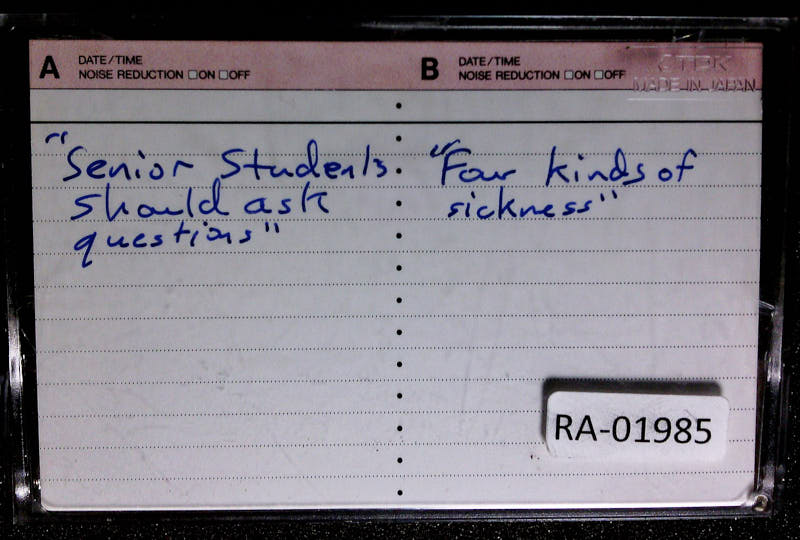 A DATE/TIME
NOISE REDUCTION ☐ON ☐OFF
B DATE/TIME
NOISE REDUCTION ☐ON ☐OFF
TDK
MADE IN JAPAN
"Senior Students
should ask
questions"
"Four kinds of
sickness"
RA-01985